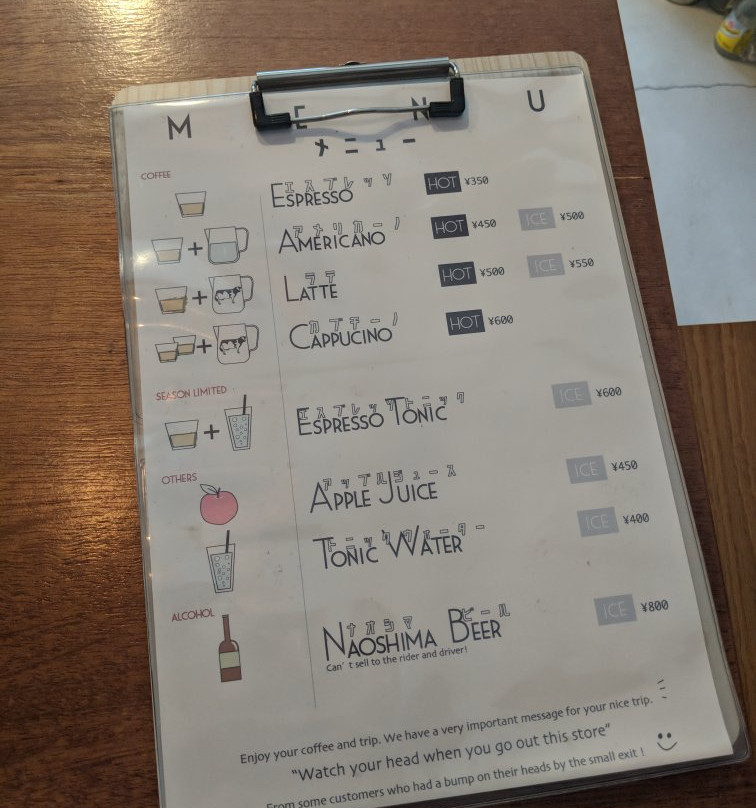 M E N U
メニュー
COFFEE
エスプレッソ
ESPRESSO HOT ¥350
アメリカーノ
AMERICANO HOT ¥450 ICE ¥500
ラテ
LATTE HOT ¥500 ICE ¥550
カプチーノ
CAPPUCINO HOT ¥600
SEASON LIMITED
エスプレッソトニック
ESPRESSO TONIC ICE ¥600
OTHERS
アップルジュース
APPLE JUICE ICE ¥450
トニックウォーター
TONIC WATER ICE ¥400
ALCOHOL
ナオシマ ビール
NAOSHIMA BEER ICE ¥800
Can't sell to the rider and driver!
Enjoy your coffee and trip. We have a very important message for your nice trip.
"Watch your head when you go out this store"
From some customers who had a bump on their heads by the small exit !